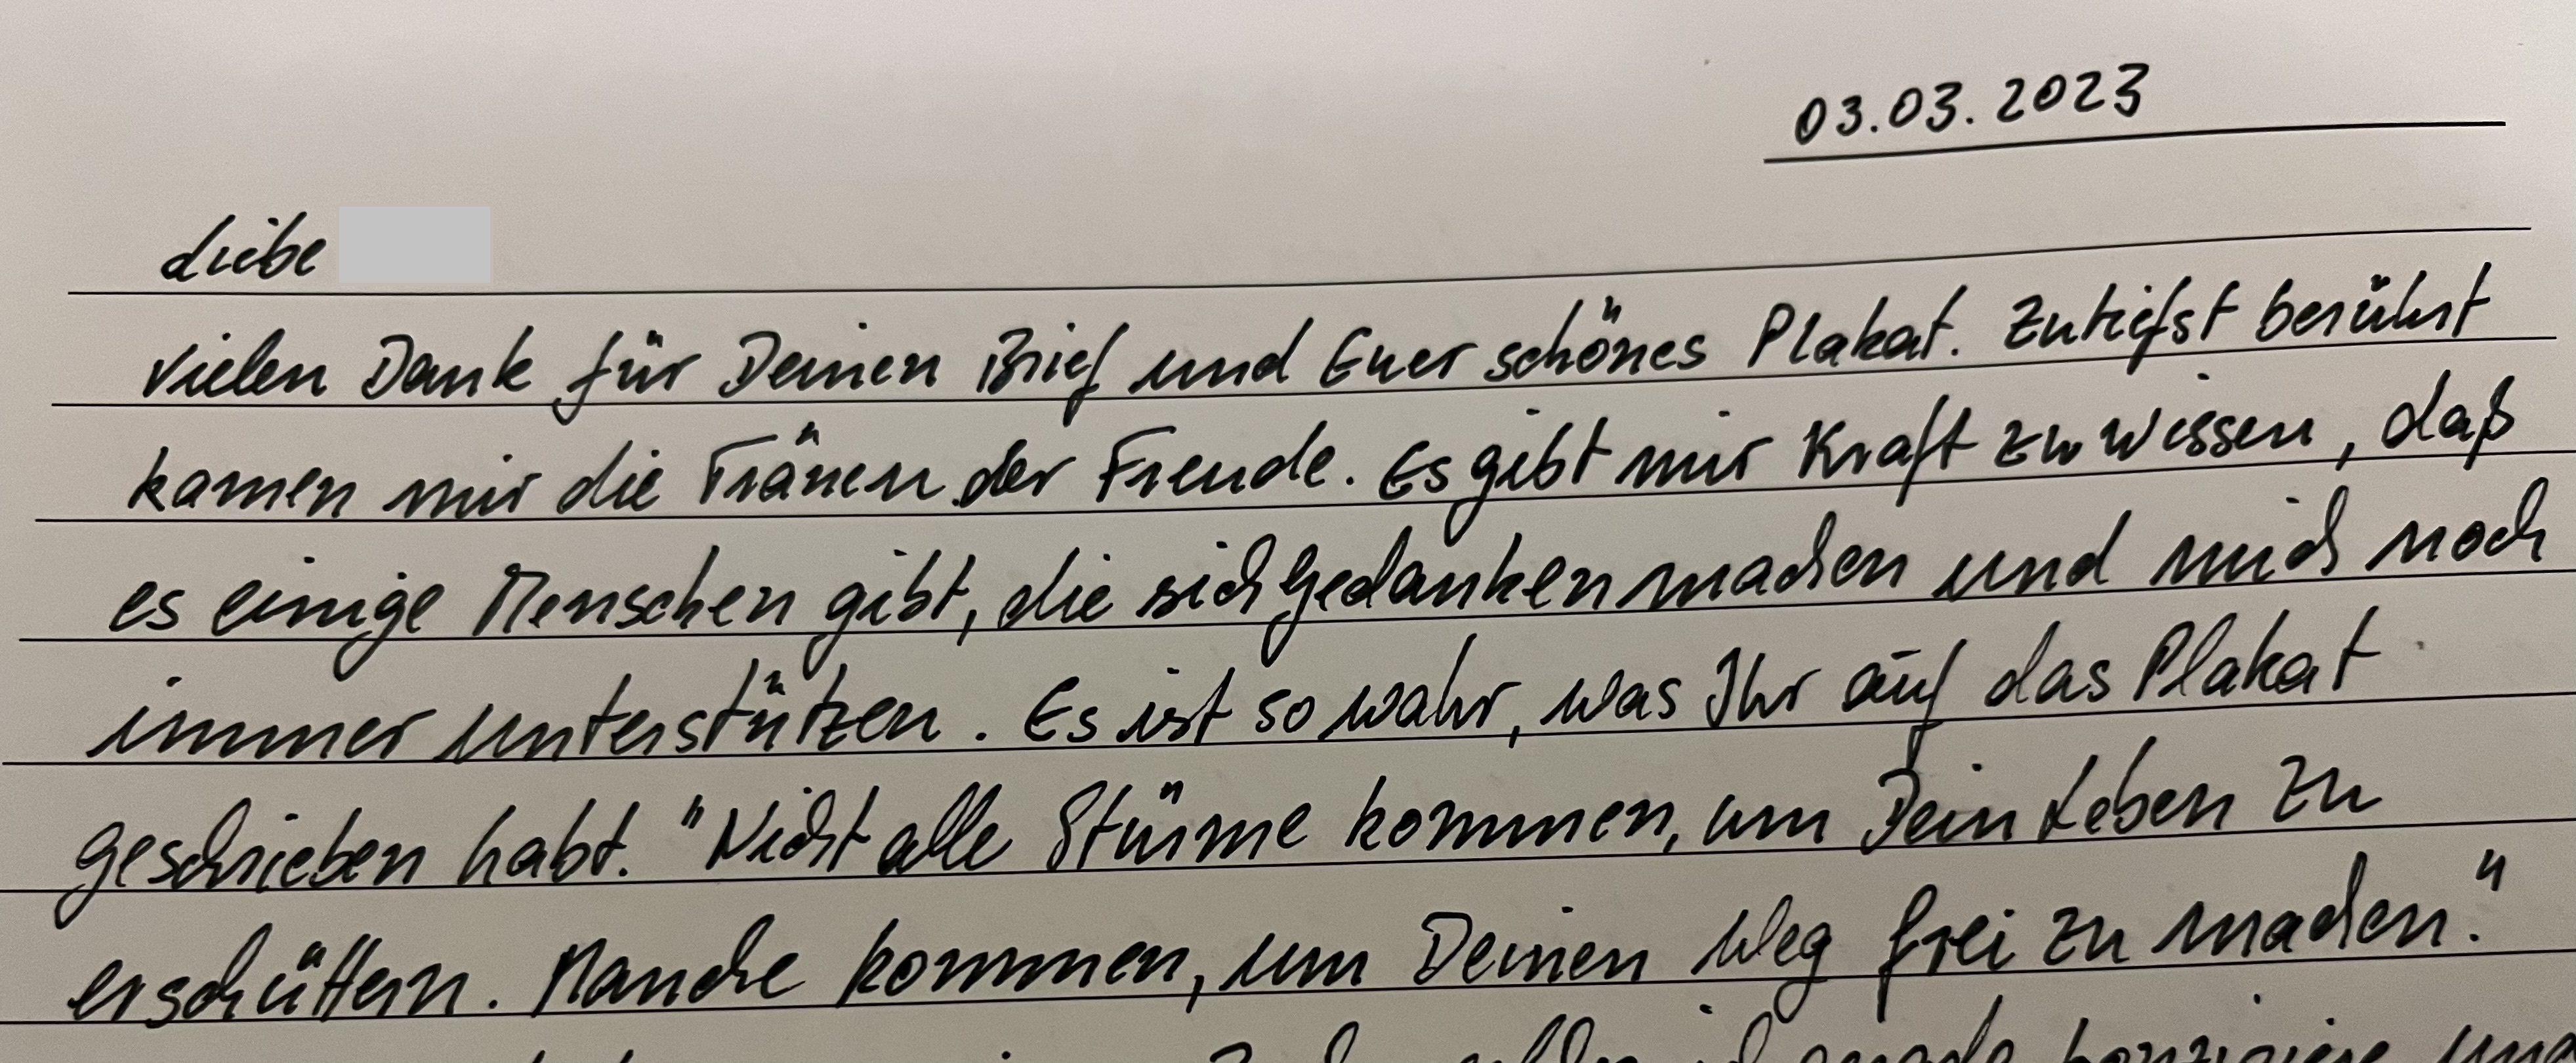 03.03.2023
Liebe
Vielen Dank für Deinen Brief und Euer schönes Plakat. Zutiefst berührt
kamen mir die Tränen der Freude. Es gibt mir Kraft zu wissen, daß
es einige Menschen gibt, die sich Gedanken machen und mich noch
immer unterstützen. Es ist so wahr, was Ihr auf das Plakat
geschrieben habt. "Nicht alle Stürme kommen, um Dein Leben zu
erschüttern. Manche kommen, um Deinen Weg frei zu machen."